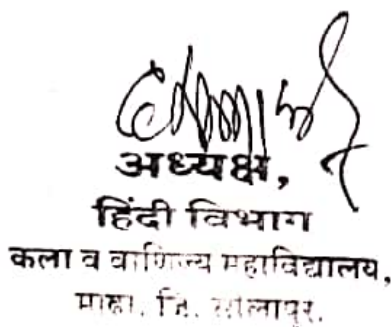 अध्यक्ष,
हिंदी विभाग
कला व वाणिज्य महाविद्यालय,
माढा. जि. सोलापूर.